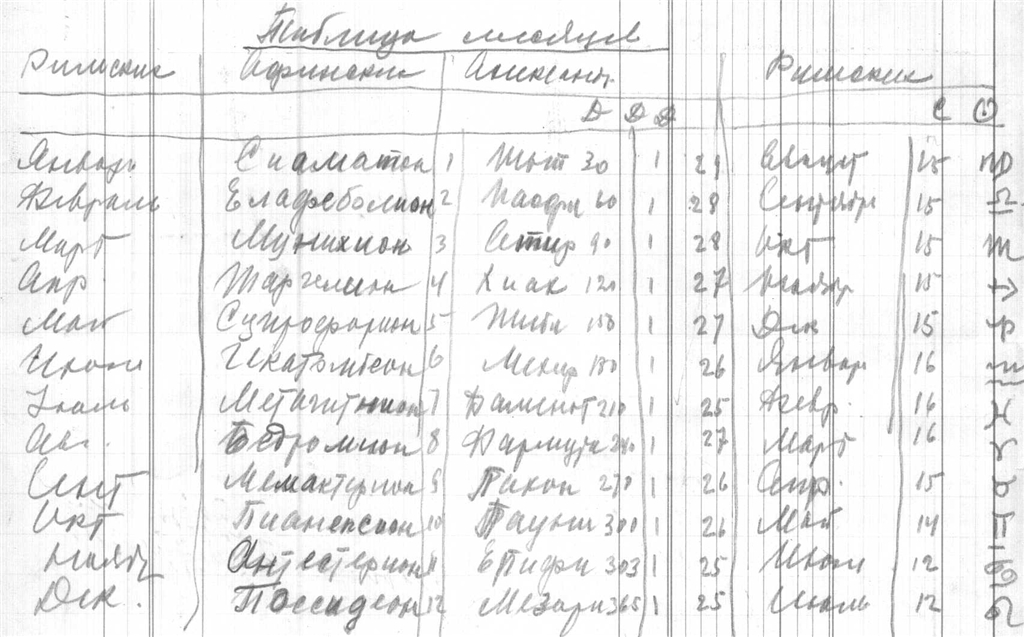 Таблица месяцев
Римские Афинские Александ. Римских
Д Д Д С
Январь 1 Тот 30 1 29 Август 15 ♍
Февраль Елафеболион 2 Паофи 60 1 28 Сентябрь 15 ♎
Март Мунихион 3 Атир 90 1 28 Окт 15 ♏
Апр. Таргелион 4 Хиак 120 1 27 Ноябр 15
Май Сцирофорион 5 Тиби 150 1 27 Дек 15
Июнь Екатомбеон 6 Мехир 180 1 26 Январ 16
Июль Метагитнион 7 Фаменот 210 1 25 Февр. 16
Авг. Бедромион 8 Фармути 240 1 27 Март 16
Сент Мемактерион 9 Пахон 270 1 26 Апр. 15
Окт Пианепсион 10 Пауни 300 1 26 Май 14
Ноябр Антестерион 11 Епифи 303 1 25 Июнь 12
Дек. Поссидеон 12 Мезори 365 1 25 Июль 12